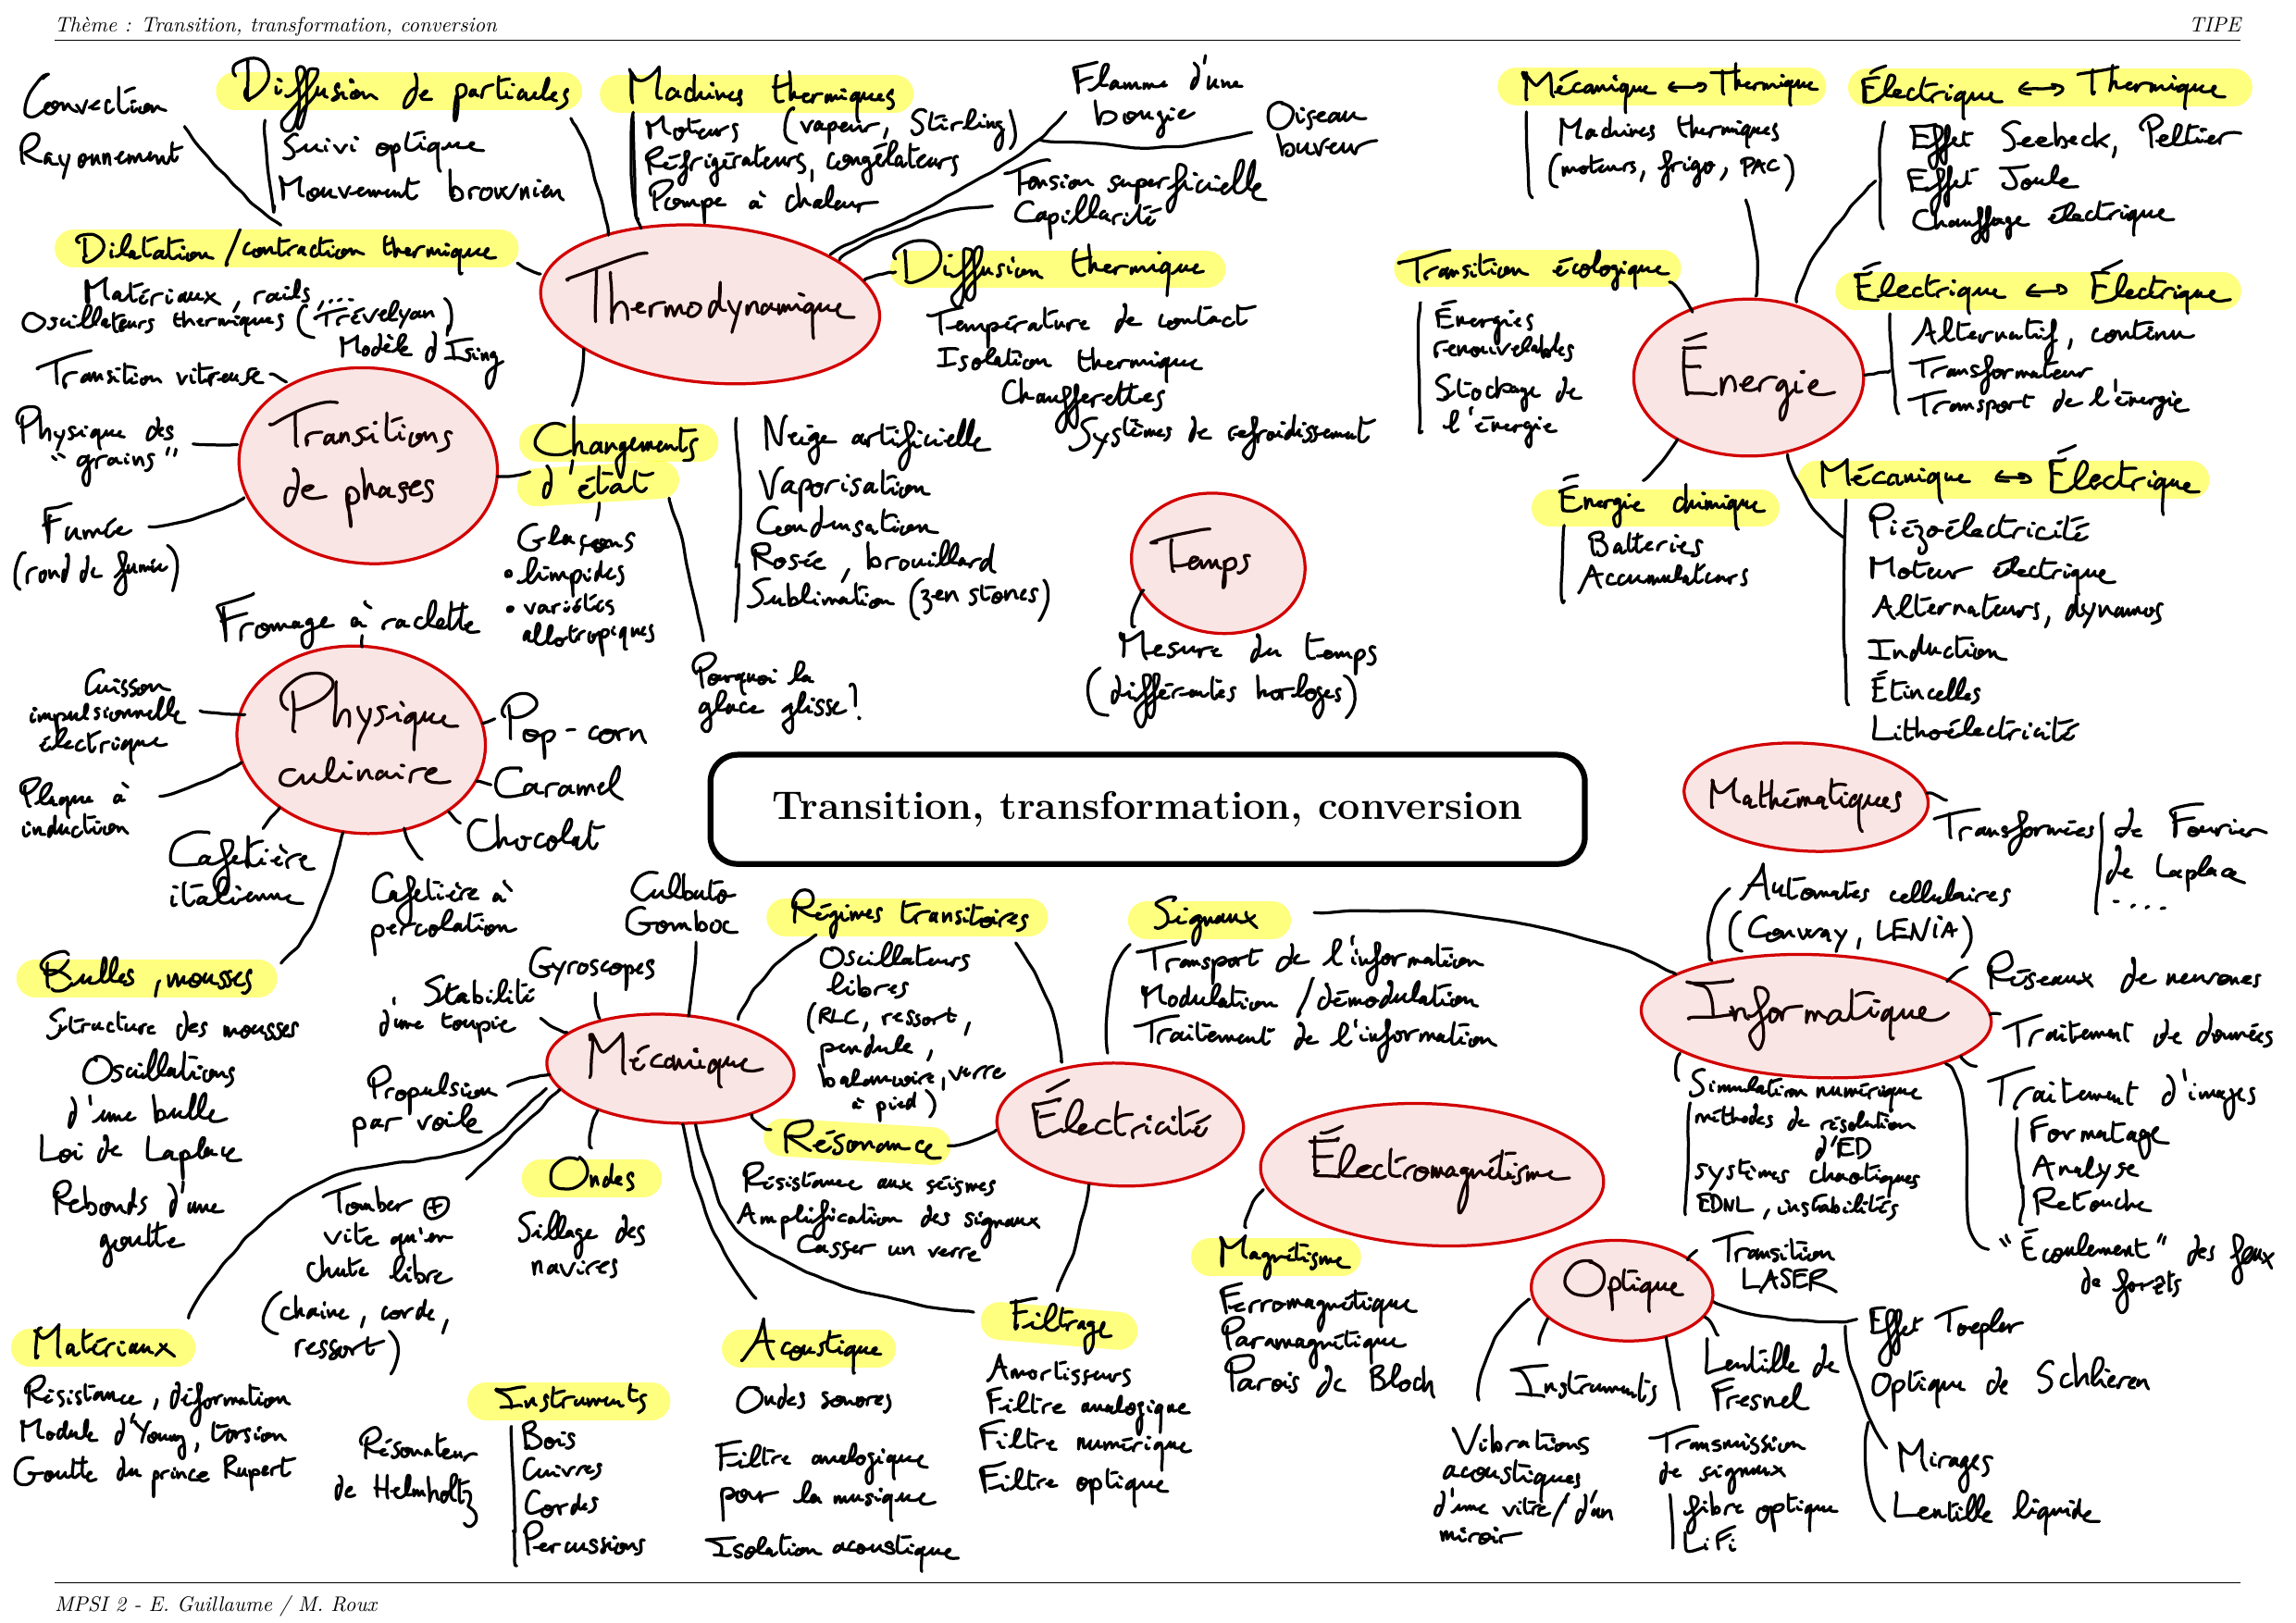 Thème : Transition, transformation, conversion
TIPE
Convection
Rayonnement
Diffusion de particules
Suivi optique
Mouvement brownien
Machines thermiques
Moteurs (vapeur, Stirling)
Réfrigérateurs, congélateurs
Pompe à chaleur
Flamme d'une
bougie
Oiseau
buveur
Tension superficielle
Capillarité
Dilatation / contraction thermique
Matériaux, rails, ...
Oscillateurs thermiques (Trévelyan)
Modèle d'Ising
Thermodynamique
Diffusion thermique
Température de contact
Isolation thermique
Chaufferettes
Systèmes de refroidissement
Mécanique ↔ Thermique
Machines thermiques
(moteurs, frigo, PAC)
Électrique ↔ Thermique
Effet Seebeck, Peltier
Effet Joule
Chauffage électrique
Transition écologique
Énergies
renouvelables
Stockage de
l'énergie
Énergie
Électrique ↔ Électrique
Alternatif, continu
Transformateur
Transport de l'énergie
Énergie chimique
Batteries
Accumulateurs
Mécanique ↔ Électrique
Piézoélectricité
Moteur électrique
Alternateurs, dynamos
Induction
Étincelles
Lithoélectricité
Transition vitreuse
Physique des
"grains"
Fumée
(rond de fumée)
Transitions
de phases
Changements
d'état
Glaçons
• limpides
• variétés
allotropiques
Neige artificielle
Vaporisation
Condensation
Rosée, brouillard
Sublimation (zen stones)
Pourquoi la
glace glisse !
Temps
Mesure du temps
(différentes horloges)
Fromage à raclette
Cuisson
impulsionnelle
électrique
Plaque à
induction
Physique
culinaire
Pop-corn
Caramel
Chocolat
Cafetière
italienne
Cafetière à
percolation
Transition, transformation, conversion
Mathématiques
Transformées
de Fourier
de Laplace
....
Bulles, mousses
Structure des mousses
Oscillations
d'une bulle
Loi de Laplace
Rebonds d'une
goutte
Culbuto
Gomboc
Gyroscopes
Stabilité
d'une toupie
Propulsion
par voile
Mécanique
Régimes transitoires
Oscillateurs
libres
(RLC, ressort,
pendule,
balançoire, verre
à pied)
Résonance
Résistance aux séismes
Amplification des signaux
Casser un verre
Signaux
Transport de l'information
Modulation / démodulation
Traitement de l'information
Électricité
Automates cellulaires
(Conway, LENIA)
Informatique
Réseaux de neurones
Traitement de données
Traitement d'images
Formatage
Analyse
Retouche
Simulation numérique
méthodes de résolution
d'ED
systèmes chaotiques
EDNL, instabilités
"Écoulement" des feux
de forêts
Tomber ⊕
vite qu'en
chute libre
(chaine, corde,
ressort)
Ondes
Sillage des
navires
Électromagnétisme
Magnétisme
Ferromagnétique
Paramagnétique
Parois de Bloch
Optique
Transition
LASER
Effet Toepler
Optique de Schlieren
Mirages
Lentille liquide
Lentille de
Fresnel
Instruments
Vibrations
acoustiques
d'une vitre / d'un
miroir
Transmission
de signaux
fibre optique
LiFi
Matériaux
Résistance, déformation
Module d'Young, torsion
Goutte du prince Rupert
Résonateur
de Helmholtz
Instruments
Bois
Cuivres
Cordes
Percussions
Acoustique
Ondes sonores
Filtre analogique
pour la musique
Isolation acoustique
Filtrage
Amortisseurs
Filtre analogique
Filtre numérique
Filtre optique
MPSI 2 - E. Guillaume / M. Roux